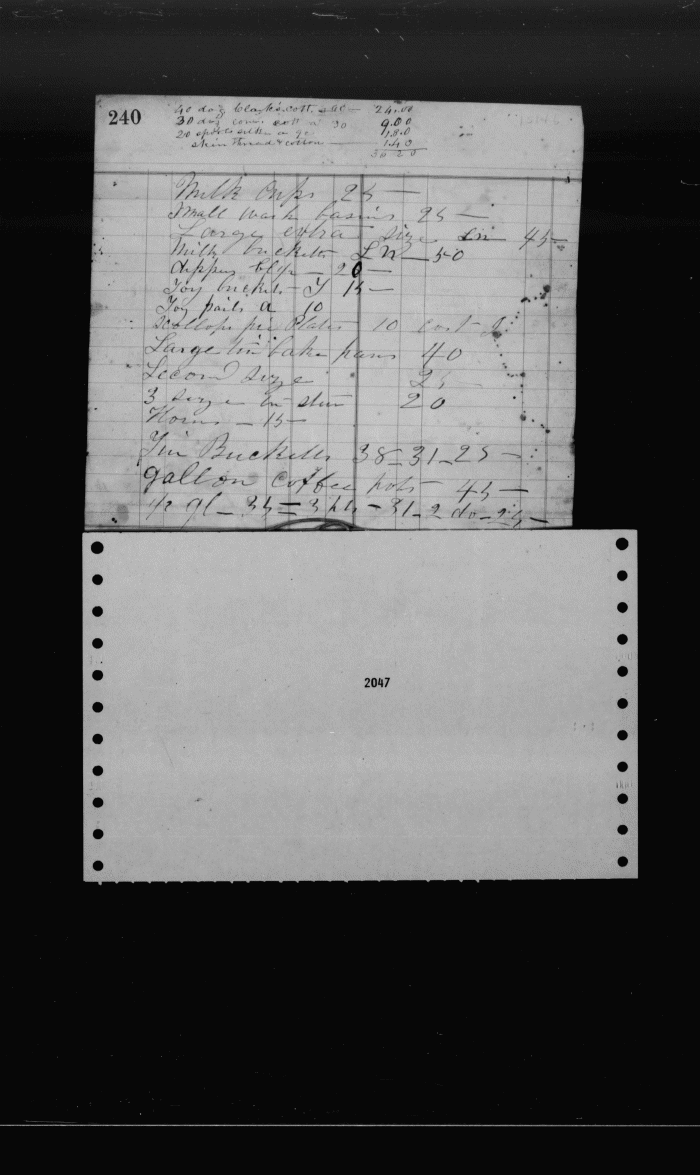 240
40 doz Clark's cott 60 — 24.00
30 doz com cott a 30 9.00
20 spools silk a 9c 1.80
skein thread & cotton — 1.40
36 20
Milk Cups 25 —
Small wash basins 25 —
Large extra size 45 —
Milk bucketts 50
dipper 20 —
Toy bucket 15 —
Toy pails a 10
Scollops pie Plates 10 cost
Large tin bake pans 40
Second size 25
3 size tin 20
Horns — 15 —
Tin Bucketts 38 – 31 – 25 —
gallon coffee pots 45 —
1/2 gl – 35 = 3 pts – 31 – 2 do – 25 —
2047